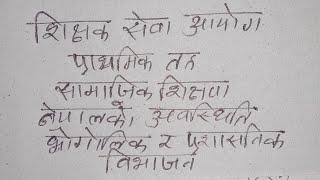 शिक्षक सेवा आयोग
प्राथमिक तह
सामाजिक शिक्षण
नेपालको अवस्थिति
भौगोलिक र प्रशासनिक
विभाजन